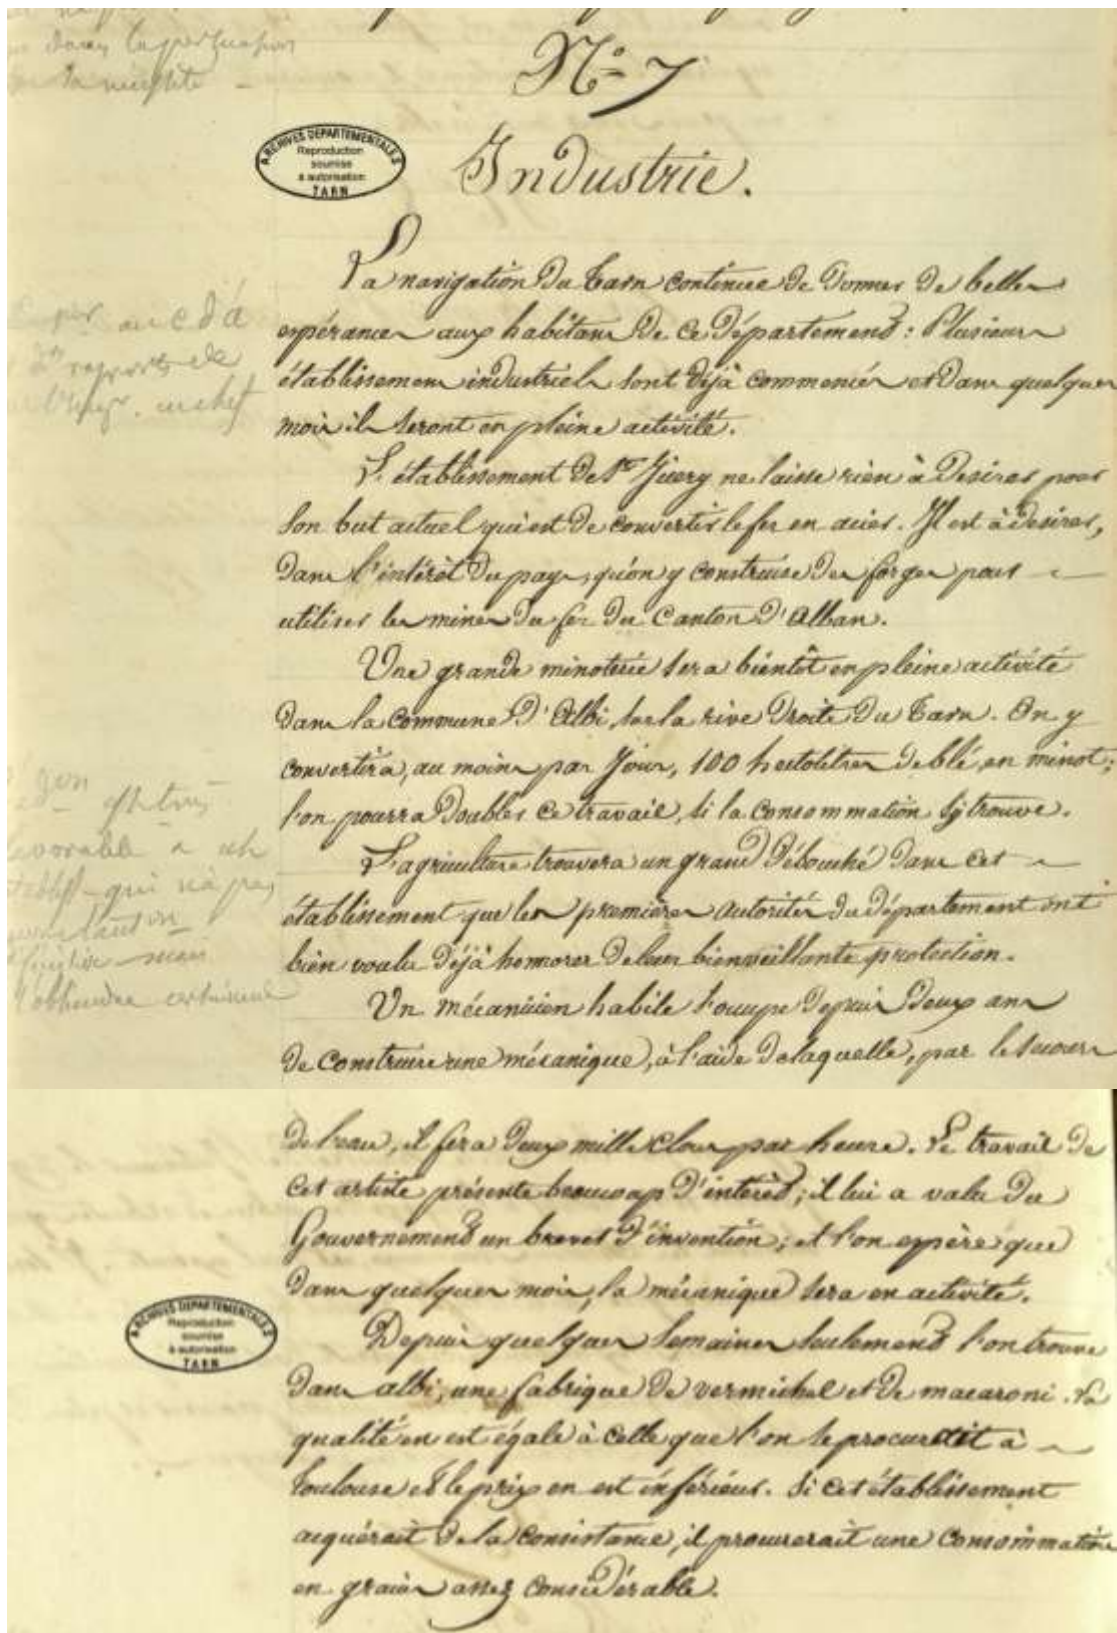 dans la persuasion
N.º 7
ARCHIVES DEPARTEMENTALES
Reproduction
soumise
à autorisation
TARN
Industrie.
La navigation du Tarn continue de donner de belles
espérances aux habitans de ce Département : Plusieurs
établissemens industriels sont déjà commencés et dans quelques
mois ils seront en pleine activité.
L'établissement de St Juery ne laisse rien à désirer pour
son but actuel qui est de convertir le fer en acier. Il est à désirer,
dans l'intérêt du pays, qu'on y construise des forges pour
utiliser les mines du fer du Canton d'Alban.
Une grande minoterie sera bientôt en pleine activité
dans la commune d'Albi, sur la rive droite du Tarn. On y
convertira, au moins par Jour, 100 hectolitres de blé, en minot ;
l'on pourra doubler ce travail, si la consommation s'y trouve.
L'agriculture trouvera un grand débouché dans cet
établissement que les premières autorités du département ont
bien voulu déjà honorer de leur bienveillante protection.
Un mécanicien habile s'occupe depuis deux ans
de construire une mécanique, à l'aide de laquelle, par le secours
de l'eau, il fera deux mille clous par heure. Le travail de
cet artiste présente beaucoup d'intérêt ; il lui a valu du
Gouvernement un brevet d'invention ; et l'on espère que
dans quelques mois, la mécanique sera en activité.
ARCHIVES DEPARTEMENTALES
Reproduction
soumise
à autorisation
TARN
Depuis quelques semaines seulement l'on trouve
dans albi, une fabrique de vermichel et de macaroni. La
qualité en est égale à celle que l'on se procurait à
Toulouse et le prix en est inférieur. Si cet établissement
acquérait de la consistance, il procurerait une consommation
en grains assez considérable.